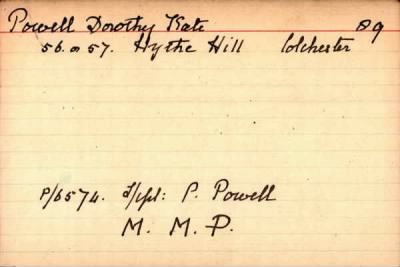 Powell Dorothy Kate B9
56. or 57. Hythe Hill Colchester
P/6574. L/Cpl: P. Powell
M. M. P.